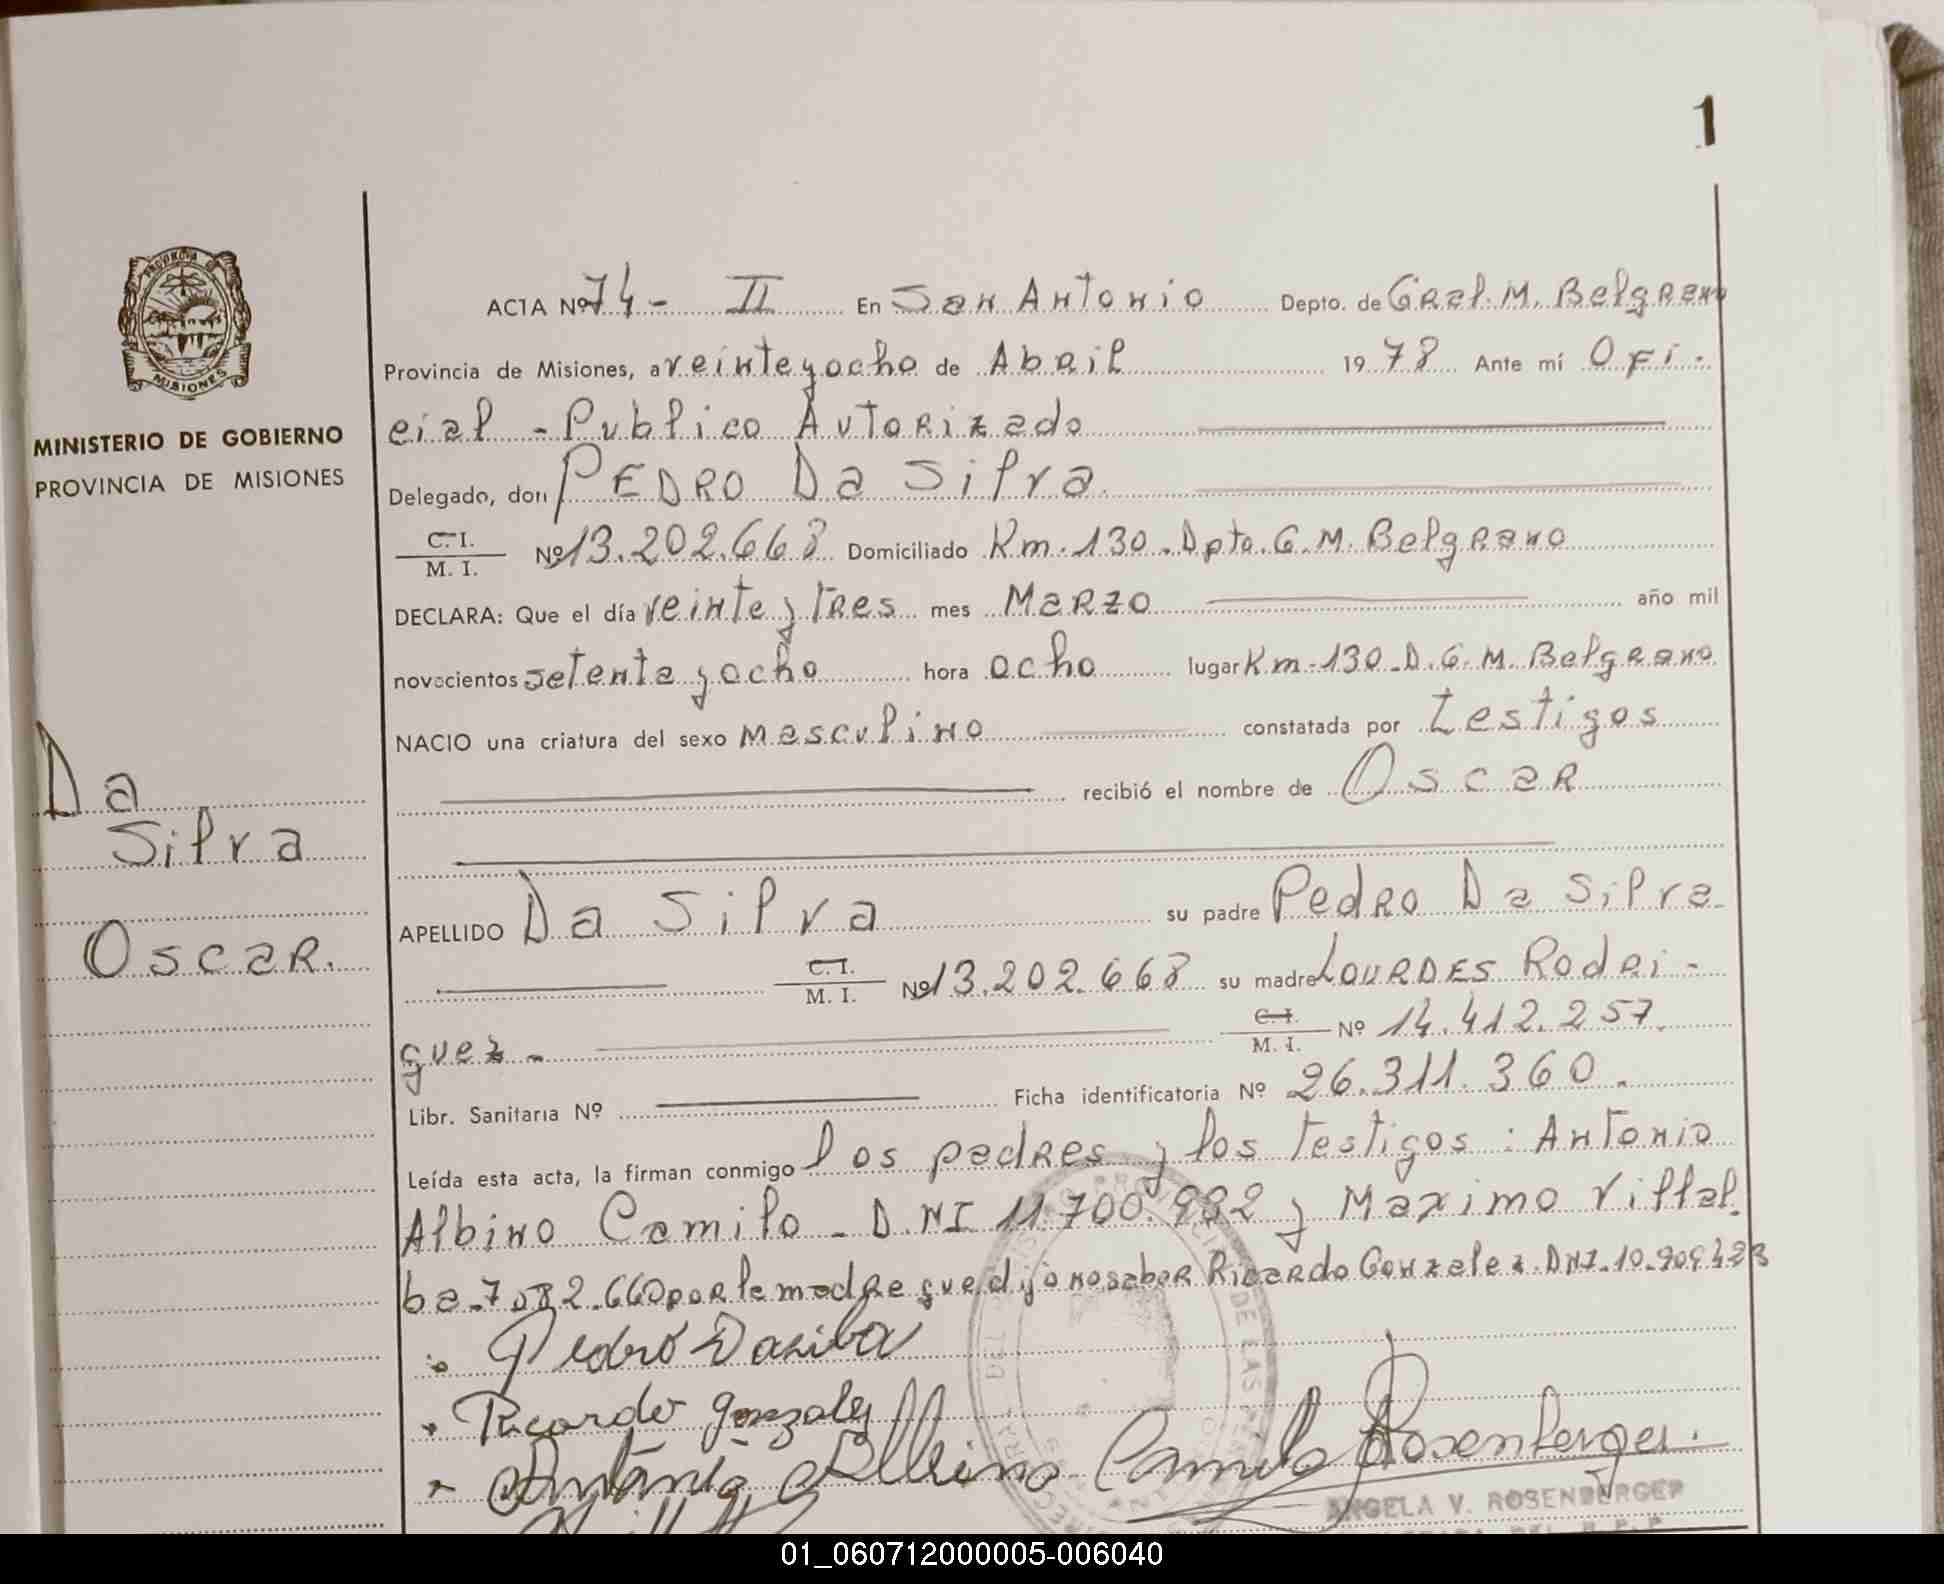 1
PROVINCIA
MISIONES
MINISTERIO DE GOBIERNO
PROVINCIA DE MISIONES
Da
Silva
Oscar.
ACTA Nº 74 - II En San Antonio Depto. de Gral. M. Belgrano
Provincia de Misiones, a veinte y ocho de Abril 19 78 Ante mí Ofi-
cial - Publico Autorizado
Delegado, don PEDRO Da Silva
C.I. / M. I. Nº 13.202.668 Domiciliado Km. 130. Dpto. G. M. Belgrano
DECLARA: Que el día veinte y tres mes Marzo año mil
novecientos setenta y ocho hora ocho lugar Km-130-D. G. M. Belgrano
NACIO una criatura del sexo masculino constatada por testigos
recibió el nombre de Oscar
APELLIDO Da Silva su padre Pedro Da Silva
C.I. / M. I. Nº 13.202.668 su madre LOURDES Rodri-
guez - C.I. / M. I. Nº 14.412.257.
Libr. Sanitaria Nº Ficha identificatoria Nº 26.311.360.
Leída esta acta, la firman conmigo los padres y los testigos: Antonio
Albino Camilo - D.NI 11.700.992 y Maximo Villal-
ba - por la madre que dijo no saber Ricardo Gonzalez. DNI. 10.909.423
Pedro Dasilva
Ricardo gonzalez
Antonio Albino Camilo Rosenberger.
ANGELA V. ROSENBERGER
01_060712000005-006040